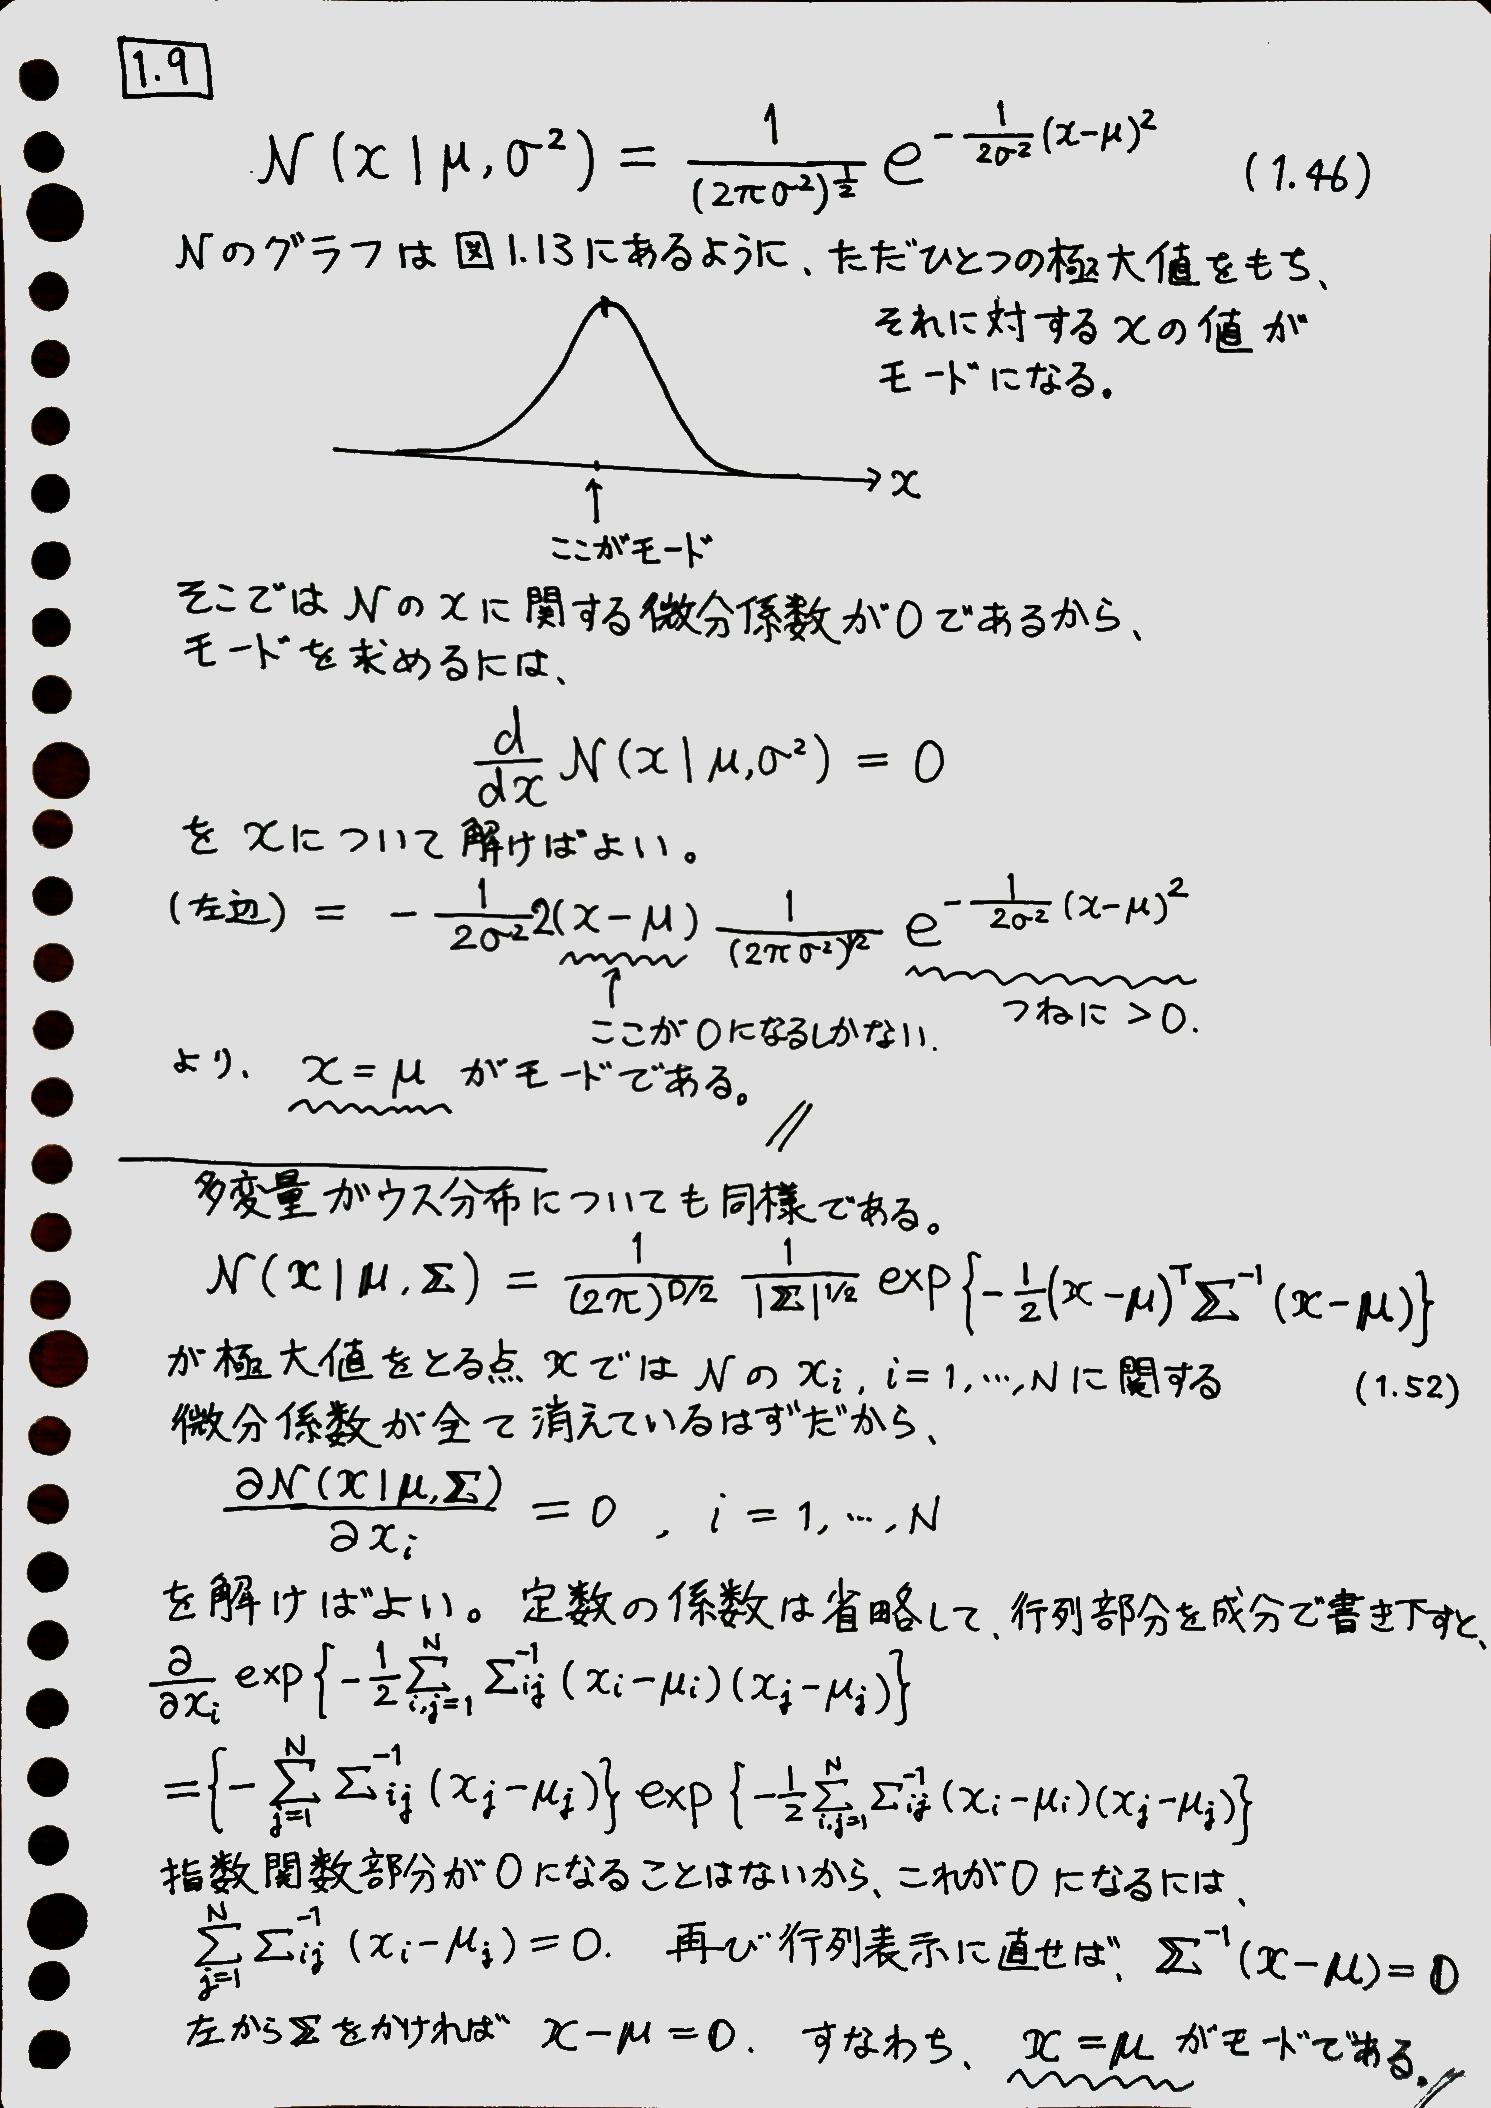 1.9
N(x|μ,σ²) = 1/(2πσ²)^{1/2} e^{-1/2σ² (x-μ)²} (1.46)
Nのグラフは図1.13にあるように、ただひとつの極大値をもち、
それに対するxの値が
モードになる。
x
ここがモード
そこではNのxに関する微分係数が0であるから、
モードを求めるには、
d/dx N(x|μ,σ²) = 0
をxについて解けばよい。
(左辺) = - 1/2σ² 2(x-μ) 1/(2πσ²)^{1/2} e^{-1/2σ² (x-μ)²}
つねに > 0.
ここが0になるしかない.
より、 x = μ がモードである。
多変量ガウス分布についても同様である。
N(x|μ,Σ) = 1/(2π)^{D/2} 1/|Σ|^{1/2} exp{-1/2(x-μ)^T Σ^{-1}(x-μ)}
が極大値をとる点xではNのx_i, i=1,…,Nに関する (1.52)
微分係数が全て消えているはずだから、
∂N(x|μ,Σ)/∂x_i = 0 , i = 1,…,N
を解けばよい。定数の係数は省略して、行列部分を成分で書き下すと、
∂/∂x_i exp{-1/2 Σ_{i,j=1}^{N} Σ_{ij}^{-1}(x_i-μ_i)(x_j-μ_j)}
={-Σ_{j=1}^{N} Σ_{ij}^{-1}(x_j-μ_j)} exp{-1/2 Σ_{i,j=1}^{N} Σ_{ij}^{-1}(x_i-μ_i)(x_j-μ_j)}
指数関数部分が0になることはないから、これが0になるには、
Σ_{j=1}^{N} Σ_{ij}^{-1}(x_i-μ_j)=0. 再び行列表示に直せば、Σ^{-1}(x-μ)=0
左からΣをかければ x-μ=0. すなわち、x=μがモードである.